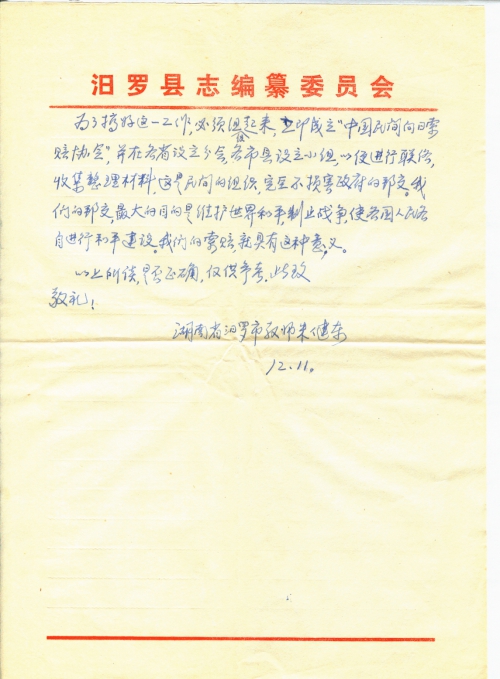 汨罗县志编纂委员会
为了搞好这一工作，必须组织起来，立即成立“中国民间向日索
赔协会”，并在各省设立分会，各市县设立小组，以便进行联络，
收集整理材料。这是民间的组织，完全不损害政府的邦交。我
们的邦交，最大的目的是维护世界和平，制止战争，使各国人民各
自进行和平建设。我们的索赔，就具有这种意义。
以上所谈，是否正确，仅供参考。此致
敬礼！
湖南省汨罗市教师朱健东
12.11。